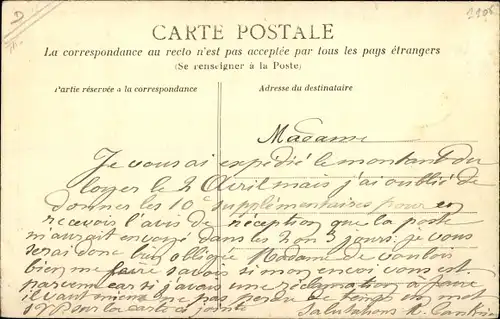 D
1105
CARTE POSTALE
La correspondance au recto n'est pas acceptée par tous les pays étrangers
(Se renseigner à la Poste)
Partie réservée a la correspondance
Adresse du destinataire
Madame
Je vous ai expédié le montant du
loyer le 2 Avril mais j'ai oublié de
donner les 10c supplémentaires pour en
recevoir l'avis de réception que la poste
m'aurait envoyé dans les 2 ou 3 jours. je vous
serai donc bien obligée Madame de vouloir
bien me faire savoir si mon envoi vous est
parvenu car si j'avais une réclamation a faire
il vaut mieux ne pas perdre de temps un mot
SVP sur la carte ci jointe Salutations